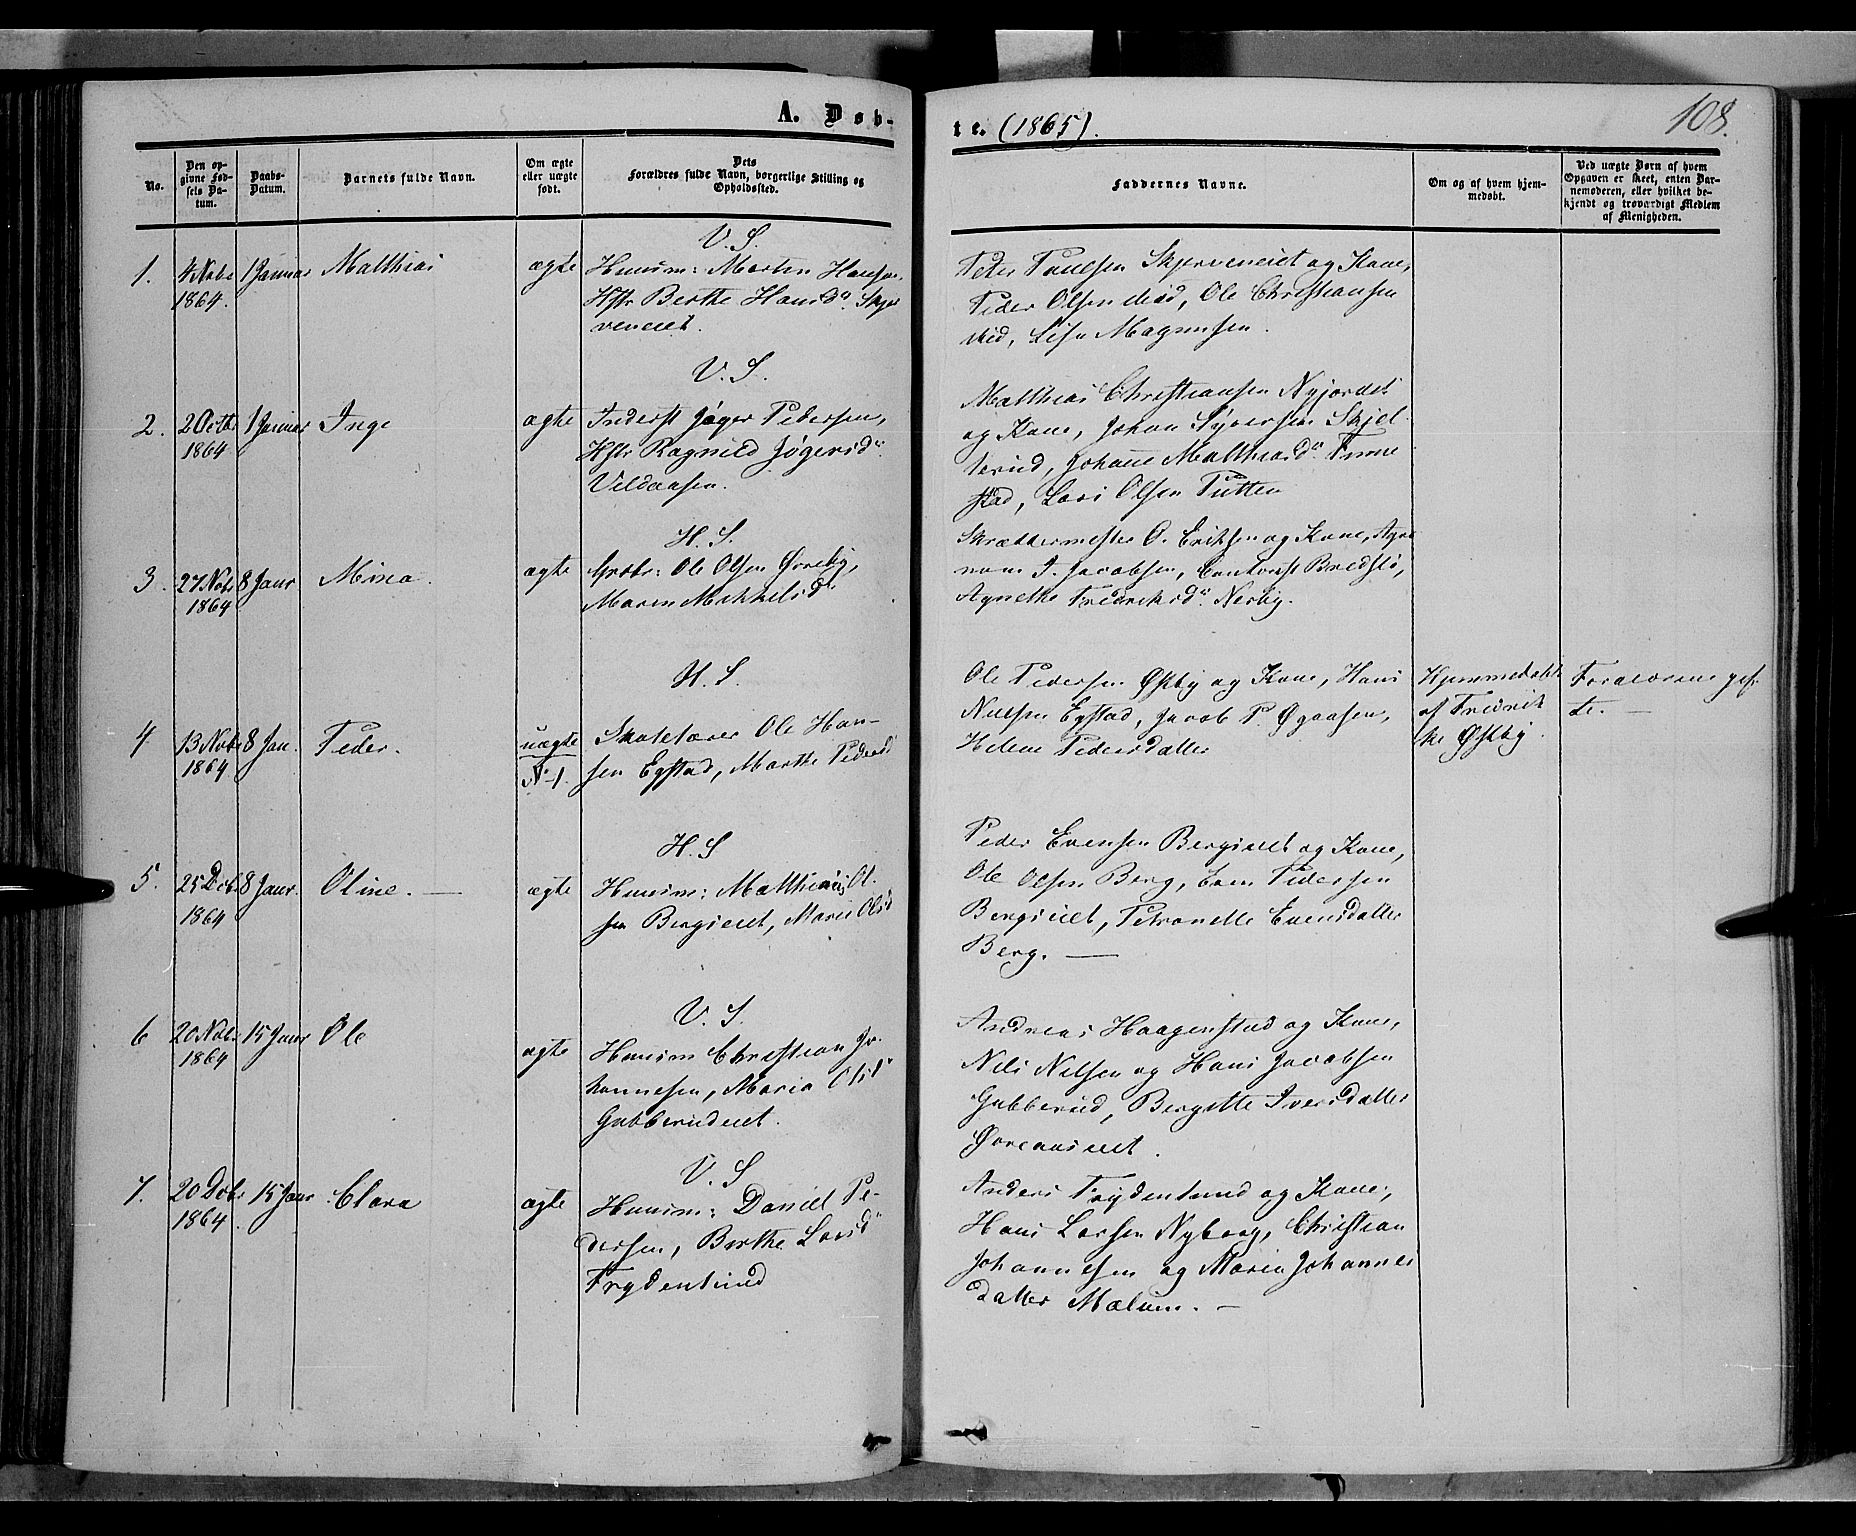 A. Døb-
te. (1865).
108.
No.
Den op-
givne Fød-
sels Da-
tum.
Daabs-
Datum.
Barnets fulde Navn.
Om ægte
eller uægte
født.
Dets
Forældres fulde Navn, borgerlige Stilling og
Opholdssted.
Faddernes Navne.
Om og af hvem hjem-
medøbt.
Ved uægte Børn af hvem
Opgaven er skeet, enten Bar-
nemoderen, eller hvilket be-
kjendt og troværdigt Medlem
af Menigheden.
V. S.
1. 4 Nobr 1 Januar Matthias ægte Huusm: Morten Hansen,
1864. Hstr Berthe Hansdr. Skjer
veneiet.
Peter Paulsen Skjerveneiet og Kone,
Peder Olsen ibid, Ole Christiansen
ibid, Lise Magnusen.
V. S.
2. 2 Octbr 1 Januar Inge ægte Inderst Jøger Pedersen,
1864 Hstr Ragnild Jøgersdr.
Veldaasen.
Matthias Christiansen Nyjordet
og Kone, Johan Syversen Skjel-
lerud, Johanne Matthiasdr Finne
stad, Lars Olsen Putten
H. S.
3. 27 Nobr 8 Janr Mina. ægte Grdbr: Ole Olsen Ørneby,
1864 Maren Mikkelsdr
Skræddermester O. Eriksen og Kone, Agro
nom J. Jacobsen, Contorist Bredslø,
Agnethe Fredriksdr. Nerby.
H. S
4 13 Nobr 8 Jan. Peder. uægte Skolelærer Ole Han-
1864 N-1. sen Egstad, Marthe Pedersd
Ole Pedersen Østby og Kone, Hans
Nilsen Egstad, Jacob P. Øgaasen,
Helene Pedersdatter
Hjemmedøbt
af Fredrik
ke Østby.
Forældrene gif
te. —
H. S
5. 25 Dcbr 8 Janr. Oline. — ægte Huusm: Matthias Ol-
1864 sen Bergseiet, Marie Olsd
Peder Evensen Bergseiet og Kone,
Ole Olsen Berg, Even Pedersen
Bergseiet, Petronelle Evensdatter
Berg. —
V. S.
6 20 Nobr. 15 Janr Ole ægte Huusm Christian Jo-
1864 hannesen, Maria Olsdr
Gubberudeiet.
Andreas Haagenstad og Kone,
Nils Nilsen og Hans Jacobsen
Gubberud, Bergitte Iversdatter
Øveraaseiet.
V. S
7. 20 Dcbr 15 Janr Clara ægte Huusm: Daniel Pe-
1864. dersen, Berthe Larsdr
Frydenlund
Anders Frydenlund og Kone,
Hans Larsen Nyborg, Christian
Johannesen og Maria Johannes
datter Mælum. —